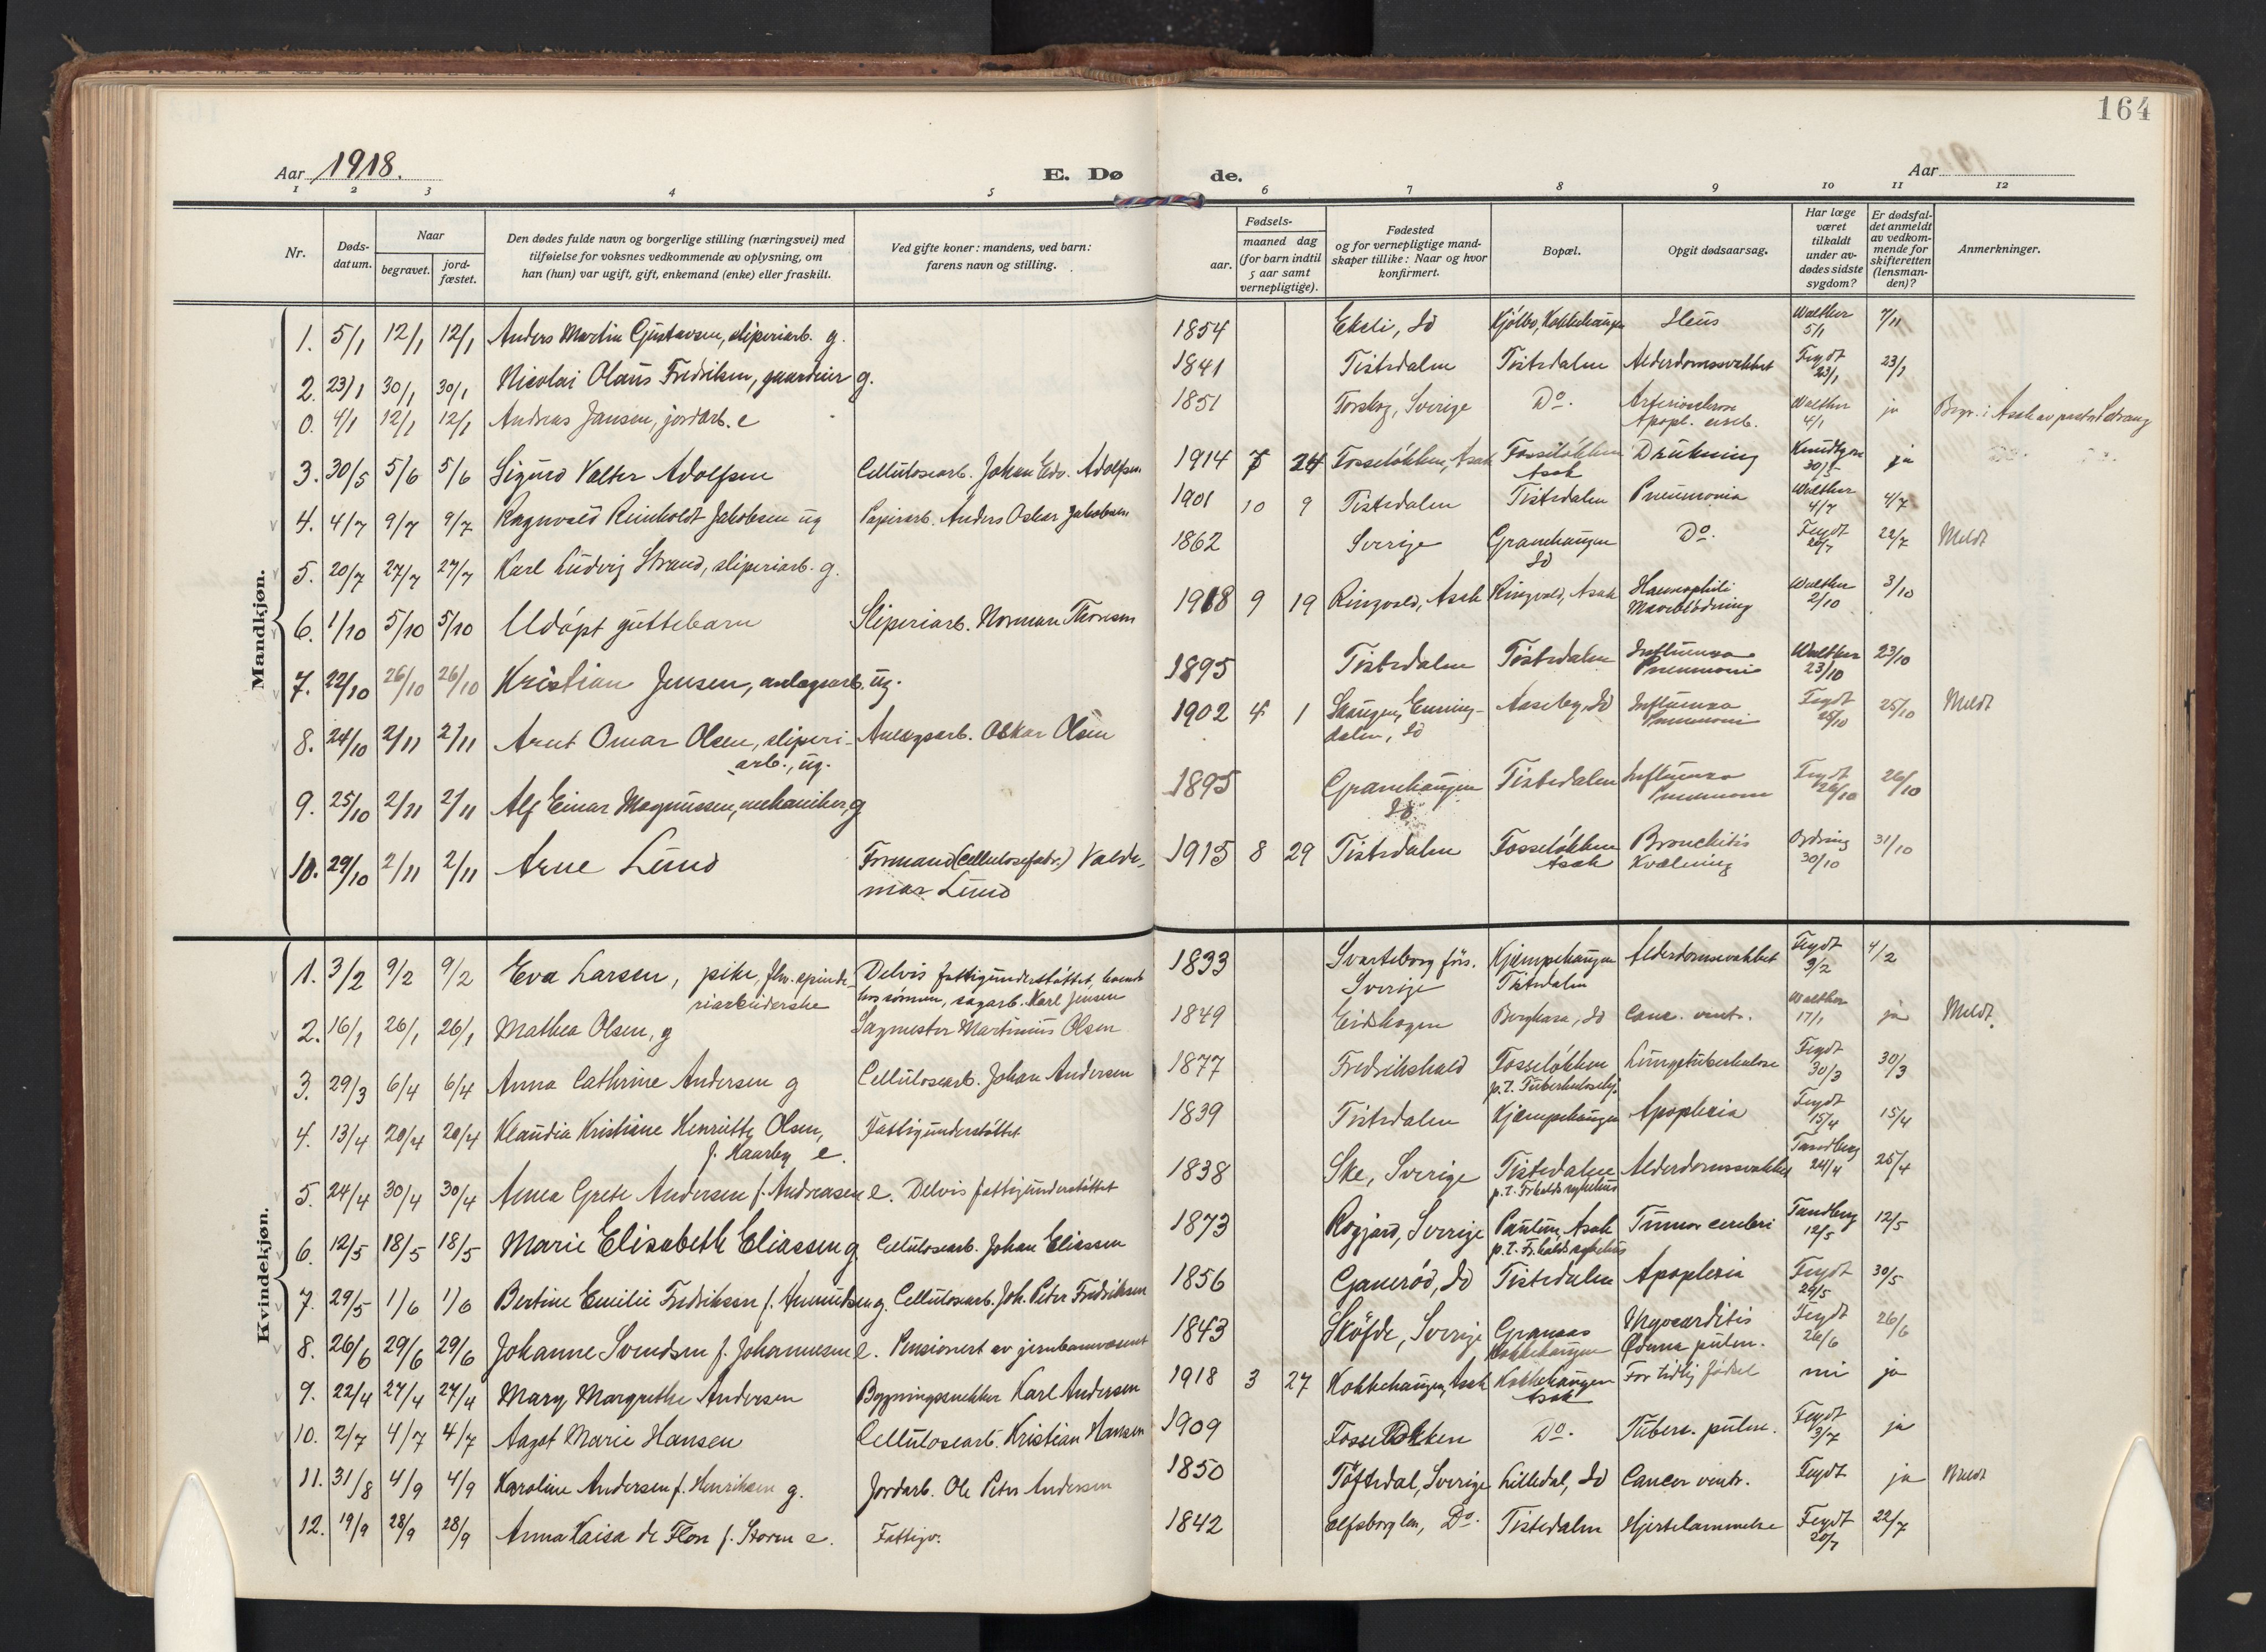 164
Aar 1918.
E. Dø de.
Aar
1 2 3 4 5 6 7 8 9 10 11 12
Nr.
Døds-
datum.
Naar
begravet.
jord-
fæstet.
Den dødes fulde navn og borgerlige stilling (næringsvei) med
tilføielse for voksnes vedkommende av oplysning, om
han (hun) var ugift, gift, enkemand (enke) eller fraskilt.
Ved gifte koner: mandens, ved barn:
farens navn og stilling.
Fødsels-
aar.
maaned dag
(for barn indtil
5 aar samt
vernepligtige).
Fødested
og for vernepligtige mand-
skaper tillike: Naar og hvor
konfirmert.
Bopæl.
Opgit dødsaarsag.
Har læge
været
tilkaldt
under av-
dødes sidste
sygdom?
Er dødsfal-
det anmeldt
av vedkom-
mende for
skifteretten
(lensman-
den)?
Anmerkninger.
Mandkjøn.
1. 5/1 12/1 12/1 Anders Martin Gustavsen, sliperiarb. g. 1854 Ekeli, Id Kjølbo, Kokkehaugen Ileus Walther 5/1 7/11
2. 23/1 30/1 30/1 Nicolai Olaus Fredriksen, gaardeier g. 1841 Tistedalen Tistedalen Alderdomssvakhet Feydt 23/1 23/1
0. 4/1 12/1 12/1 Andreas Jansen, jordarb. e 1851 Torskog, Sverige Do. Arteriosklerose Walther ja Begr. i Asak av pastor
Apopl. cereb. 4/1
3. 30/5 5/6 5/6 Sigurd Valter Adolfsen Cellulosearb. Johan Edv. Adolfsen 1914 7 24 Fosseløkken, Asak Fosseløkken Drukning ja
Asak 30/5
4. 4/7 9/7 9/7 Ragnvald Reinholdt Jakobsen ug Papirarb. Anders Oskar Jakobsen 1901 10 9 Tistedalen Tistedalen Pneumonia Walther 4/7 4/7
5. 20/7 27/7 27/7 Karl Ludvig Strand, sliperiarb. g. 1862 Sverige Granehaugen Do. Feydt 22/7 Meldt
Id 20/7
6. 1/10 5/10 5/10 Udøpt guttebarn Sliperiarb. Norman Thoresen 1918 9 19 Ringvold, Asak Ringvold, Asak Haemophili Walther 3/10
Maveblødning 2/10
7. 22/10 26/10 26/10 Kristian Jensen, anlægsarb. ug. 1895 Tistedalen Tistedalen Influensa Walther 23/10
Pneumoni 23/10
8. 24/10 2/11 2/11 Arnt Omar Olsen, sliperi- Anlægsarb. Oskar Olsen 1902 4 1 Skaugen, Enning- Aaseby, Id Influensa Feydt 25/10 Meldt
arb., ug. dalen, Id Pneumoni 25/10
9. 25/10 2/11 2/11 Alf Einar Magnussen, mekaniker, g 1895 Granehaugen Tistedalen Influensa Feydt 26/10
Id Pneumoni 26/10
10. 29/10 2/11 2/11 Arne Lund Formand (Cellulosefabr.) Valde- 1915 8 29 Tistedalen Fosseløkken Bronchitis Ording 31/10
mar Lund Asak Kvælning 30/10
Kvindekjøn.
1. 3/2 9/2 9/2 Eva Larsen, pike, fhv. spinde- Delvis fattigunderstøttet, boende 1833 Svarteborg førs. Kjæmpehaugen Alderdomssvakhet Feydt 4/2
riarbeiderske hos sønnen, sagarb. Karl Jensen Sverige Tistedalen 3/2
2. 16/1 26/1 26/1 Mathea Olsen, g Sagmester Martinius Olsen 1849 Eidskogen Berghara, Id Canc. ventr. Walther 17/1 ja Meldt.
3. 29/3 6/4 6/4 Anna Cathrine Andersen g Cellulosearb. Johan Andersen 1877 Fredrikshald Fosseløkken Lungetuberkulose Feydt 30/3
p.t. Tuberkulosehj. 30/3
4. 13/4 20/4 20/4 Klaudia Kristiane Henriette Olsen, Fattigunderstøttet 1839 Tistedalen Kjæmpehaugen Apoplexia Feydt 15/4
f. Kaarby e. 15/4
5. 24/4 30/4 30/4 Anna Grete Andersen f. Andreasen e. Delvis fattigunderstøttet 1838 Ske, Sverige Tistedalen Alderdomssvakhet Tandberg 24/4 25/4
p.t. Frhalds sykehus
6. 12/5 18/5 18/5 Marie Elisabeth Eliassen g. Cellulosearb. Johan Eliassen 1873 Rogjard, Sverige Pautun, Asak Tumor cerebri Tandberg 12/5
p.t. Fr.halds sykehus 12/5
7. 29/5 1/6 1/6 Bertine Emilie Fredriksen f. Amundsen g. Cellulosearb. Joh. Peter Fredriksen 1856 Ganerød, Id Tistedalen Apoplexia Feydt 30/5
29/5
8. 26/6 29/6 29/6 Johanne Svendsen f. Johannesen e. Pensionert av jernbanevæsenet 1843 Skøfde, Sverige Granaas Myocarditis Feydt 26/6
Kokkehaugen Ødema pulm. 26/6
9. 22/4 27/4 27/4 Mary Margrethe Andersen Bygningssnekker Karl Andersen 1918 3 27 Kokkehaugen, Asak Kokkehaugen For tidlig fødsel nei ja
Asak
10. 2/7 4/7 4/7 Aagot Marie Hansen Cellulosearb. Kristian Hansen 1909 Fosseløkken Do. Tuberc. pulm. Feydt 3/7 ja
11. 31/8 4/9 4/9 Karoline Andersen f. Henriksen g. Jordarb. Ole Peter Andersen 1850 Töftedal, Sverige Lilledal, Id Cancer ventr. Feydt ja Meldt
12. 19/9 28/9 28/9 Anna Kaisa de Flon f. Storm e. Fattigv. 1842 Elfsborg len, Do. Tistedalen Hjertelammelse Feydt 22/7
20/7